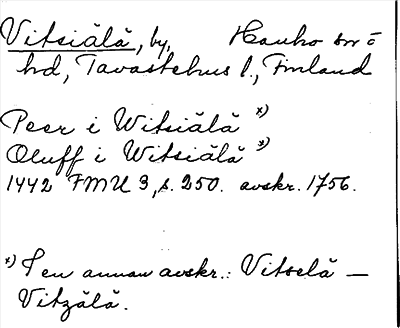 Vitsiälä, by, Hauho sn o
hd, Tavastehus l., Finland
Peer i Witsiälä *)
Oluff i Witsiälä *)
1442 FMU 3, s. 250. avskr. 1756.
*) I en annan avskr.: Vitselä —
Vitzälä.